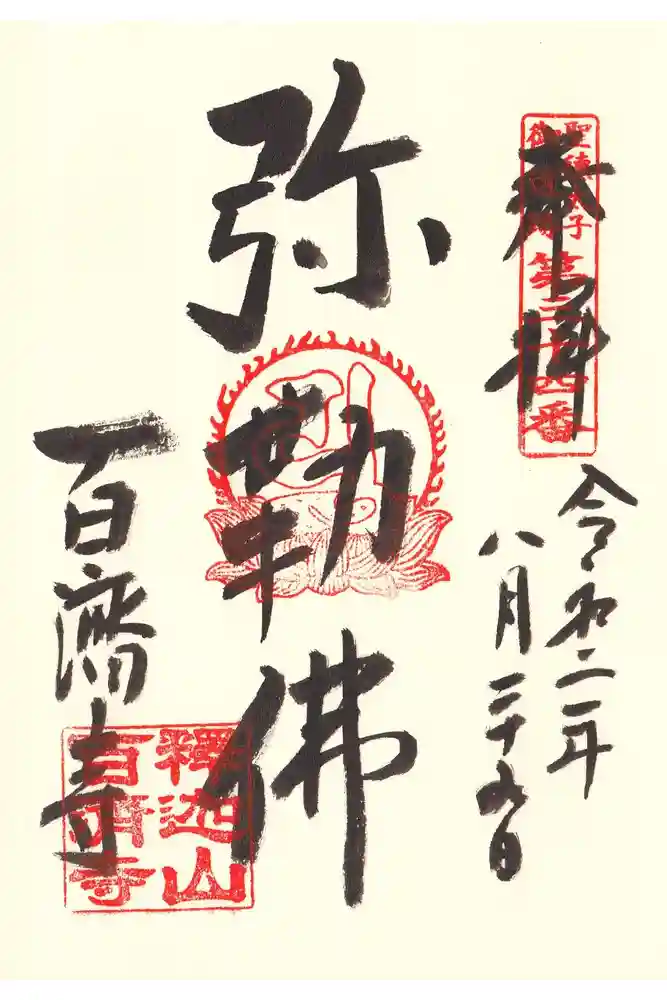 奉拝
聖徳太子
第三十四番
令和二年
八月二十九日
弥勒佛
百濟寺
釋迦山
百濟寺